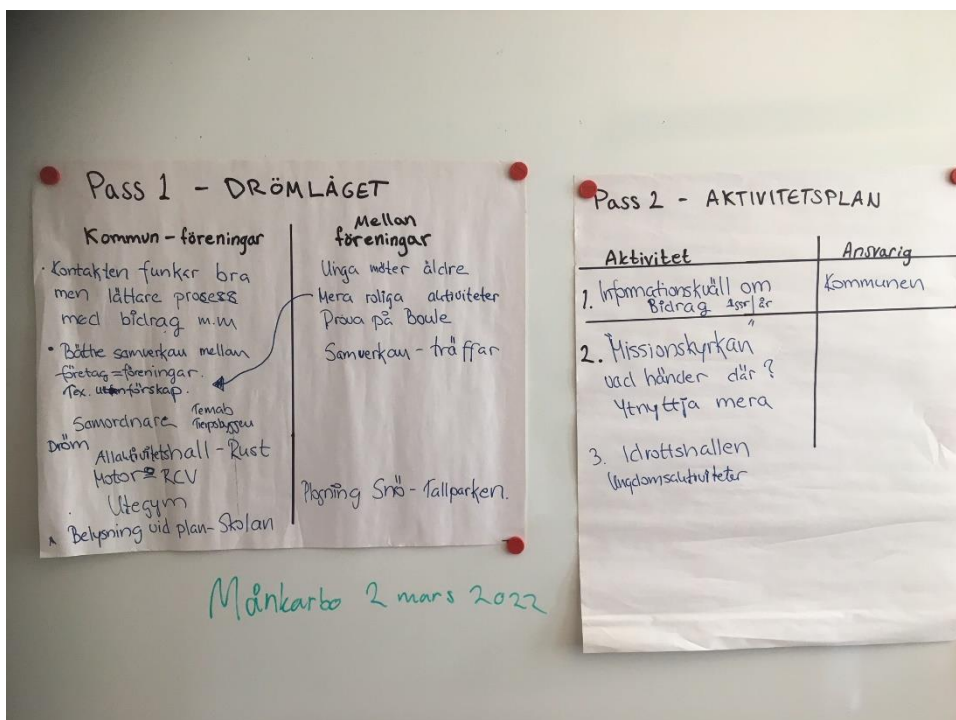 Pass 1 - DRÖMLÄGET
Kommun - föreningar
· Kontakten funkar bra
men lättare process
med bidrag m.m
• Bättre samverkan mellan
företag = föreningar.
Tex. utanförskap.
Samordnare Temab
Tierpsbyggen
Dröm
Allaktivitetshall - Rust
Motor RCV
Utegym
Belysning vid plan - Skolan
Mellan
föreningar
Unga möter äldre
Mera roliga aktiviteter
Prova på Boule
Samverkan - träffar
Plogning Snö - Tallparken.
Pass 2 - AKTIVITETSPLAN
Aktivitet
Ansvarig
1. Informationskväll om
Bidrag 1ggr/år
Kommunen
2. Missionskyrkan
vad händer där?
Ytnyttja mera
3. Idrottshallen
Ungdomsaktiviteter
Månkarbo 2 mars 2022